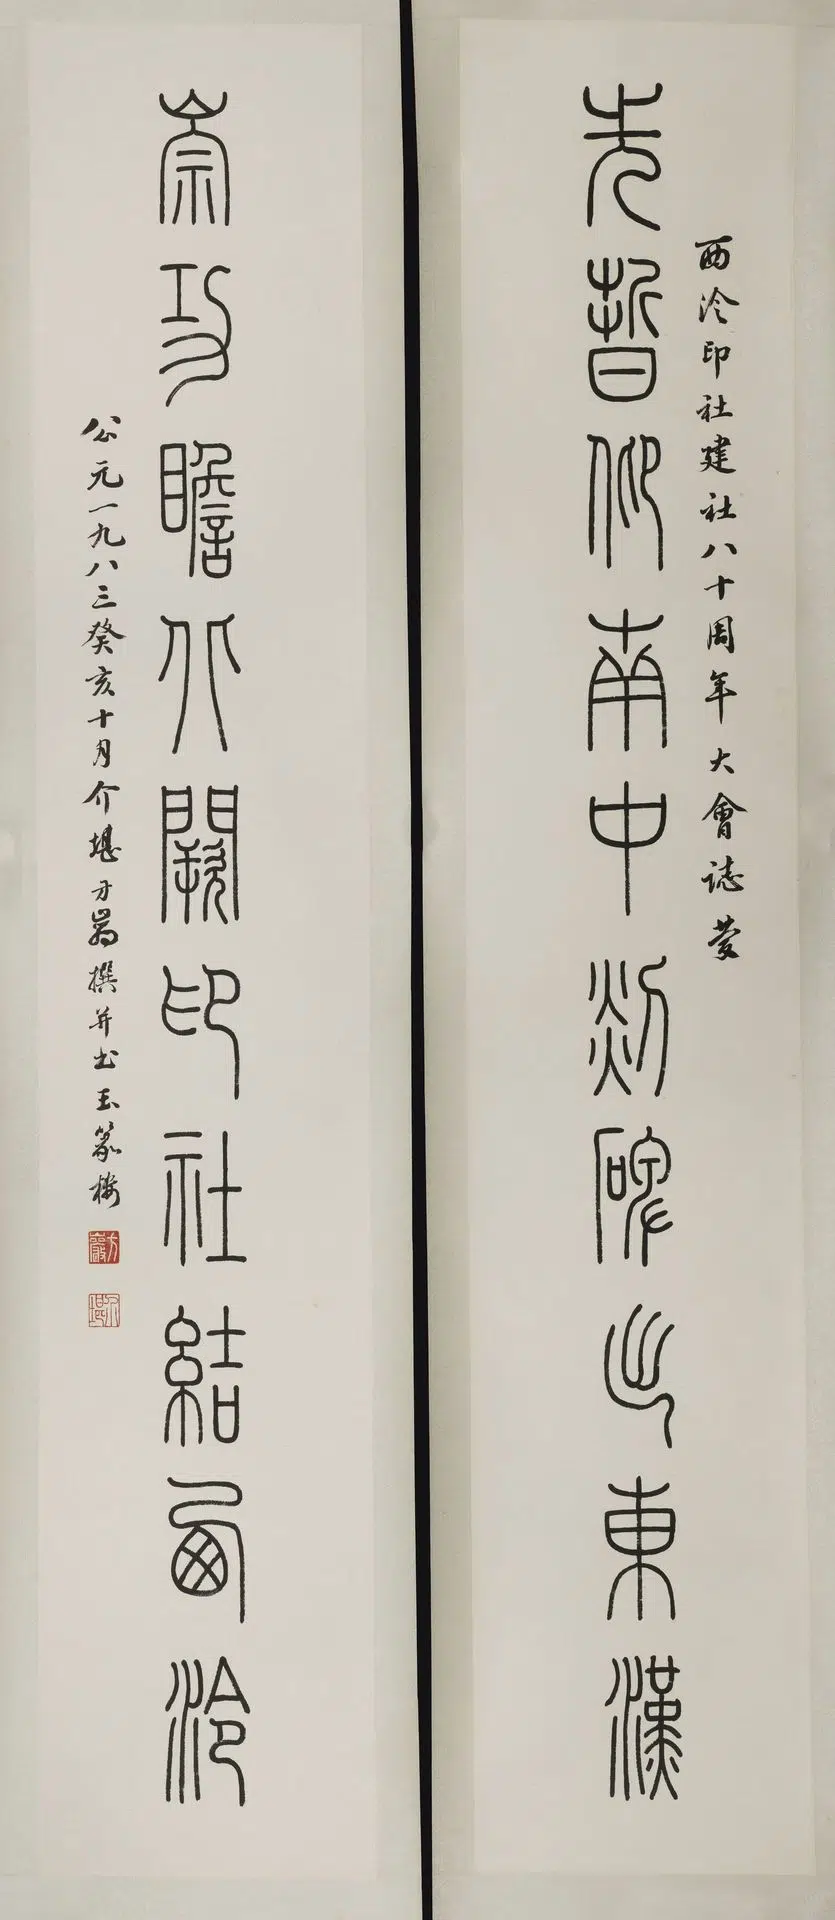 先哲仰南中剡碑東漢
西泠印社建社八十周年大會誌慶
崇功瞻北闕印社結西泠
公元一九八三癸亥十月介堪方巖撰并书玉篆樓
方巖
介堪